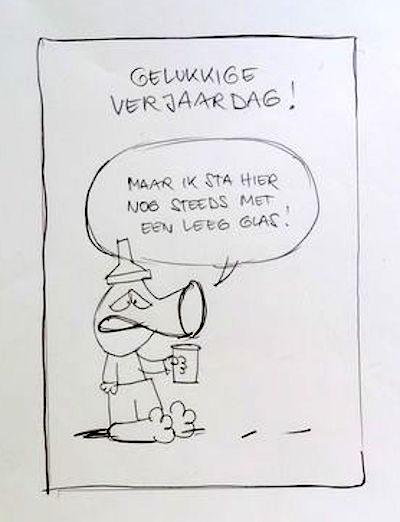 GELUKKIGE
VERJAARDAG!
MAAR IK STA HIER
NOG STEEDS MET
EEN LEEG GLAS!